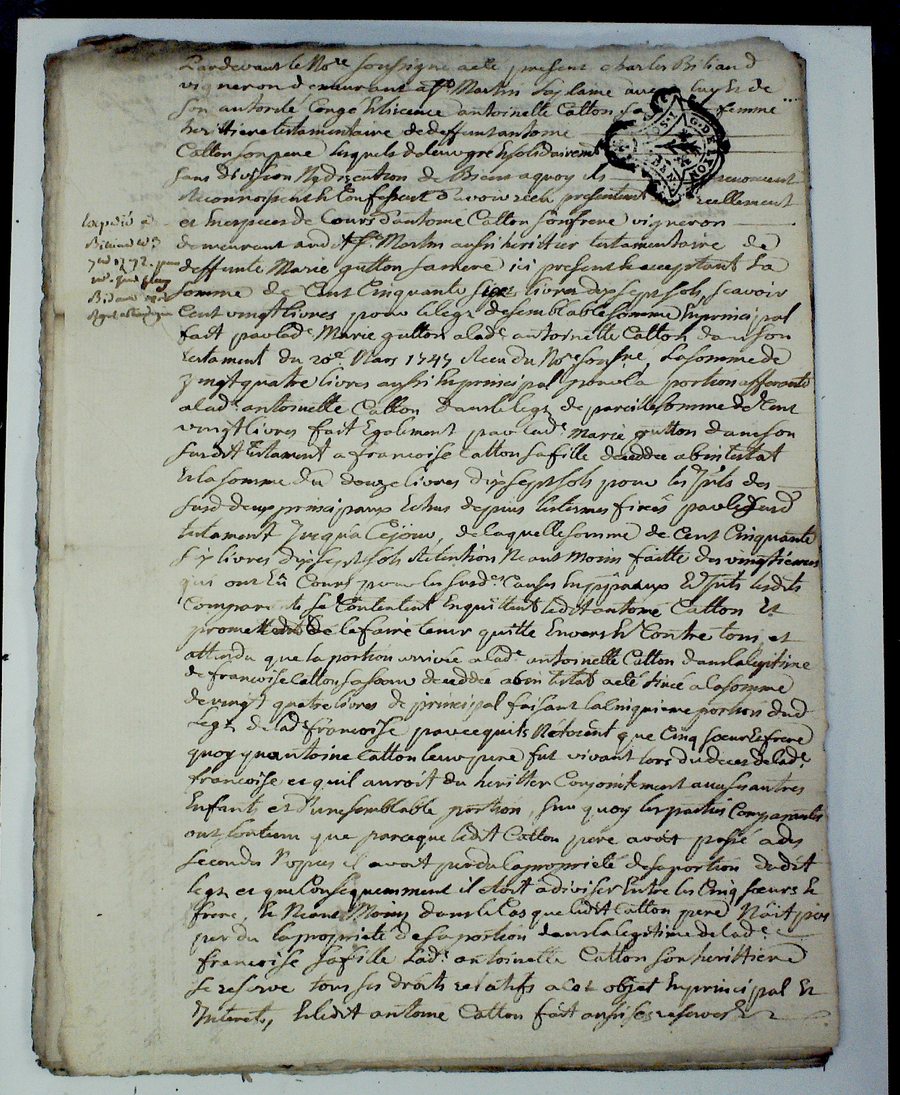 Pardevant le No.re soussigné a été present Charles Biliaud
vigneron demeurant a St Martin avec luy et de
son autorité Congé et licence antoinette Catton sa femme
herittiere testamentaire de deffunt antoine
Catton son pere lesquels de leur gré et solidairem.t
sans division Ny discution de Biens a quoy ils renoncent
Reconnoissent et Confessent d'avoir receu presentem.t reellement
et en especes de Cours d'antoine Catton son frere vigneron
demeurant aud. St Martin aussi herittier testamentaire de
deffunte Marie gutton sa mere ici present et acceptant La
somme de Cent Cinquante six livres dix sept sols, scavoir
Cent vingt livres pour le legz de semblable somme En principal
fait par lad. Marie gutton a lad.e antoinette Catton dans son
testament du 20.e Mars 1747 Receu du No.re soussigné, La somme de
vingt quatre livres aussi En principal pour la portion afferante
a lad.e antoinette Catton dans le legz de pareille somme de Cent
vingt livres fait Egalement par lad.e Marie gutton dans son
susdit testament a francoise Catton sa fille decedée abintestat
Et la somme de douze livres dix sept sols pour les Jnts des
susd. deux principaux Echus depuis les termes fixés par le susd.
testament Jusqu'a Ce jour, de laquelle somme de Cent Cinquante
six livres dix sept sols Retention Neantmoins faitte des vingtiemes
qui ont Eu Cours pour les susd.es Causes En ppeaux Et Jnts lesdits
Comparants se Contentent En quittent ledit antoine Catton Et
promettent de le faire tenir quitte Envers Et Contre tous, et
attendu que la portion arrivée a lad.e antoinette Catton dans la legitime
de francoise Catton sa soeur decedée abintestat a eté fixée a la somme
de vingt quatre livres de principal faisant la Cinquieme portion dud.
legz de lad.e francoise parce qu'ils N'étoient que Cinq soeurs Et frere
quoy qu'antoine Catton leur pere fut vivant lors du deces de lad.e
francoise et qu'il auroit du heritter Conjointement avec ses autres
Enfants et d'une semblable portion, sur quoy les parties Comparantes
ont soutenu que parceque ledit Catton pere avoit passé a des
secondes Nopces il avoit perdu la proprieté de sa portion dudit
legz et que Consequemment il etoit a diviser Entre les Cinq soeurs Et
frere, Et Neant Moins dans le Cas que ledit Catton pere N'ait pas
perdu la proprieté de sa portion dans la legitime de lad.e
francoise sa fille Lad.e antoinette Catton son herittiere
se reserve tous ses droits relatifs a cet objet En principal Et
Interets, Et ledit antoine Catton fait aussi ses reserves Et
Expedié a
Biliaud le 3
1772
G.D. DE LYON